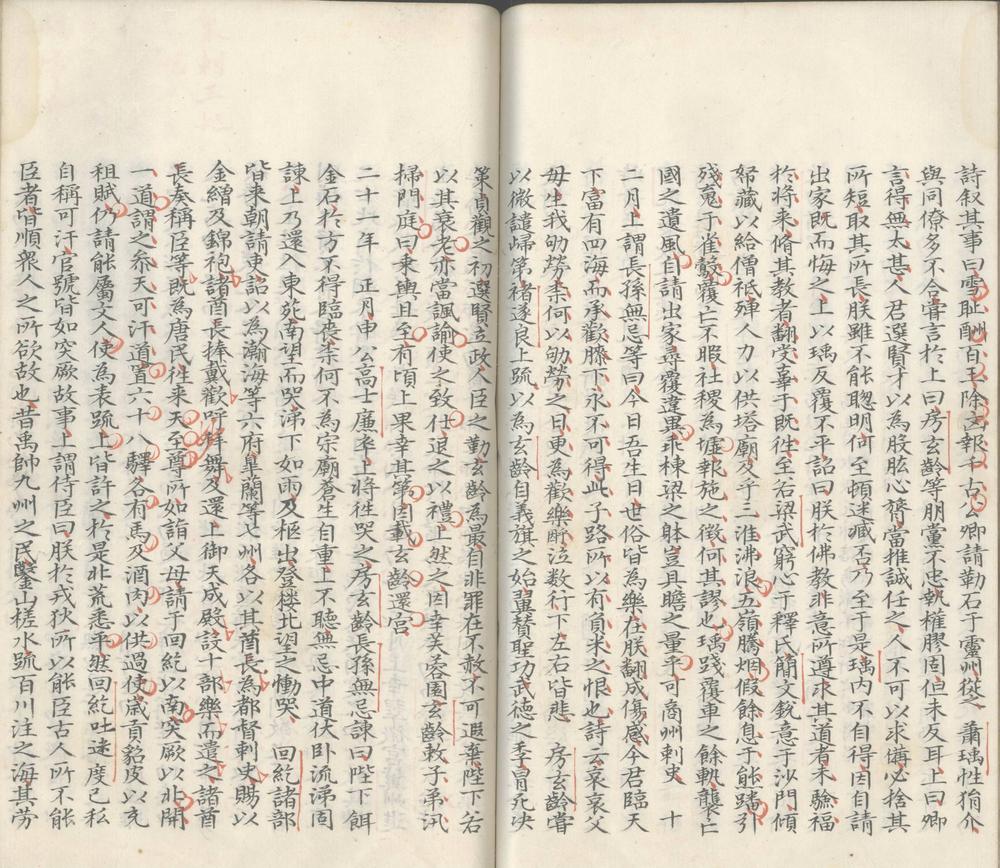 詩叙其事曰雪耻酬百王除凶報千古公卿請勒石于靈州從之　蕭瑀性狷介
與同僚多不合嘗言於上曰房玄齡等朋黨不忠執權膠固但未反耳上曰卿
言得無太甚人君選賢才以為股肱心膂當推誠任之人不可以求備必捨其
所短取其所長朕雖不能聰明何至頓迷臧否乃至于是瑀内不自得因自請
出家既而悔之上以瑀反覆不平詔曰朕於佛教非意所遵求其道者未驗福
於將来脩其教者翻受辜于既徃至若梁武窮心于釋氏簡文鋭意于沙門傾
帑藏以給僧祗殫人力以供塔廟及乎三淮沸浪五嶺騰烟假餘息于熊蹯引
殘䰟于雀鷇覆亡不暇社稷為墟報施之徴何其謬也瑀踐覆車之餘軌襲亡
國之遺風自請出家尋覆違異乖棟梁之躰豈具瞻之量乎可商州刺史　十
二月上謂長孫無忌等曰今日吾生日世俗皆為樂在朕翻成傷感今君臨天
下富有四海而承歡膝下永不可得此子路所以有負米之恨也詩云哀哀父
母生我劬勞柰何以劬勞之日更為歡樂酧泣数行下左右皆悲　房玄齡嘗
以微譴歸第褚遂良上疏以為玄齡自義旗之始翼賛聖功武徳之季冒死决
策貞觀之初選賢立政人臣之勤玄齡為最自非罪在不赦不可遐棄陛下若
以其衰老亦當諷諭使之致仕退之以禮上然之因幸芙蓉園玄齡敕子弟汛
掃門庭曰乗輿且至有頃上果幸其第因載玄齡還宮
二十一年正月申公高士廉卒上將徃哭之房玄齡長孫無忌諫曰陛下餌
金石於方不得臨喪柰何不為宗廟蒼生自重上不聽無忌中道伏卧流涕固
諫上乃還入東苑南望而哭涕下如雨及柩出登樓北望之慟哭　回紇諸部
皆来朝請吏詔以為瀚海等六府臯蘭等七州各以其酋長為都督刺史賜以
金繒及錦袍諸酋長捧戴歡呼拜舞及還上御天成殿設十部樂而遣之諸酋
長奏稱臣等既為唐民徃来天至尊所如詣父母請于回紇以南突厥以北開
一道謂之叅天可汗道置六十八驛各有馬及酒肉以供過使歳貢貂皮以充
租賦仍請能屬文人使為表疏上皆許之於是北荒悉平然回紇吐迷度已私
自稱可汗官號皆如突厥故事上謂侍臣曰朕於戎狄所以能臣古人所不能
臣者皆順衆人之所欲故也昔禹帥九州之民鑿山槎水疏百川注之海其劳